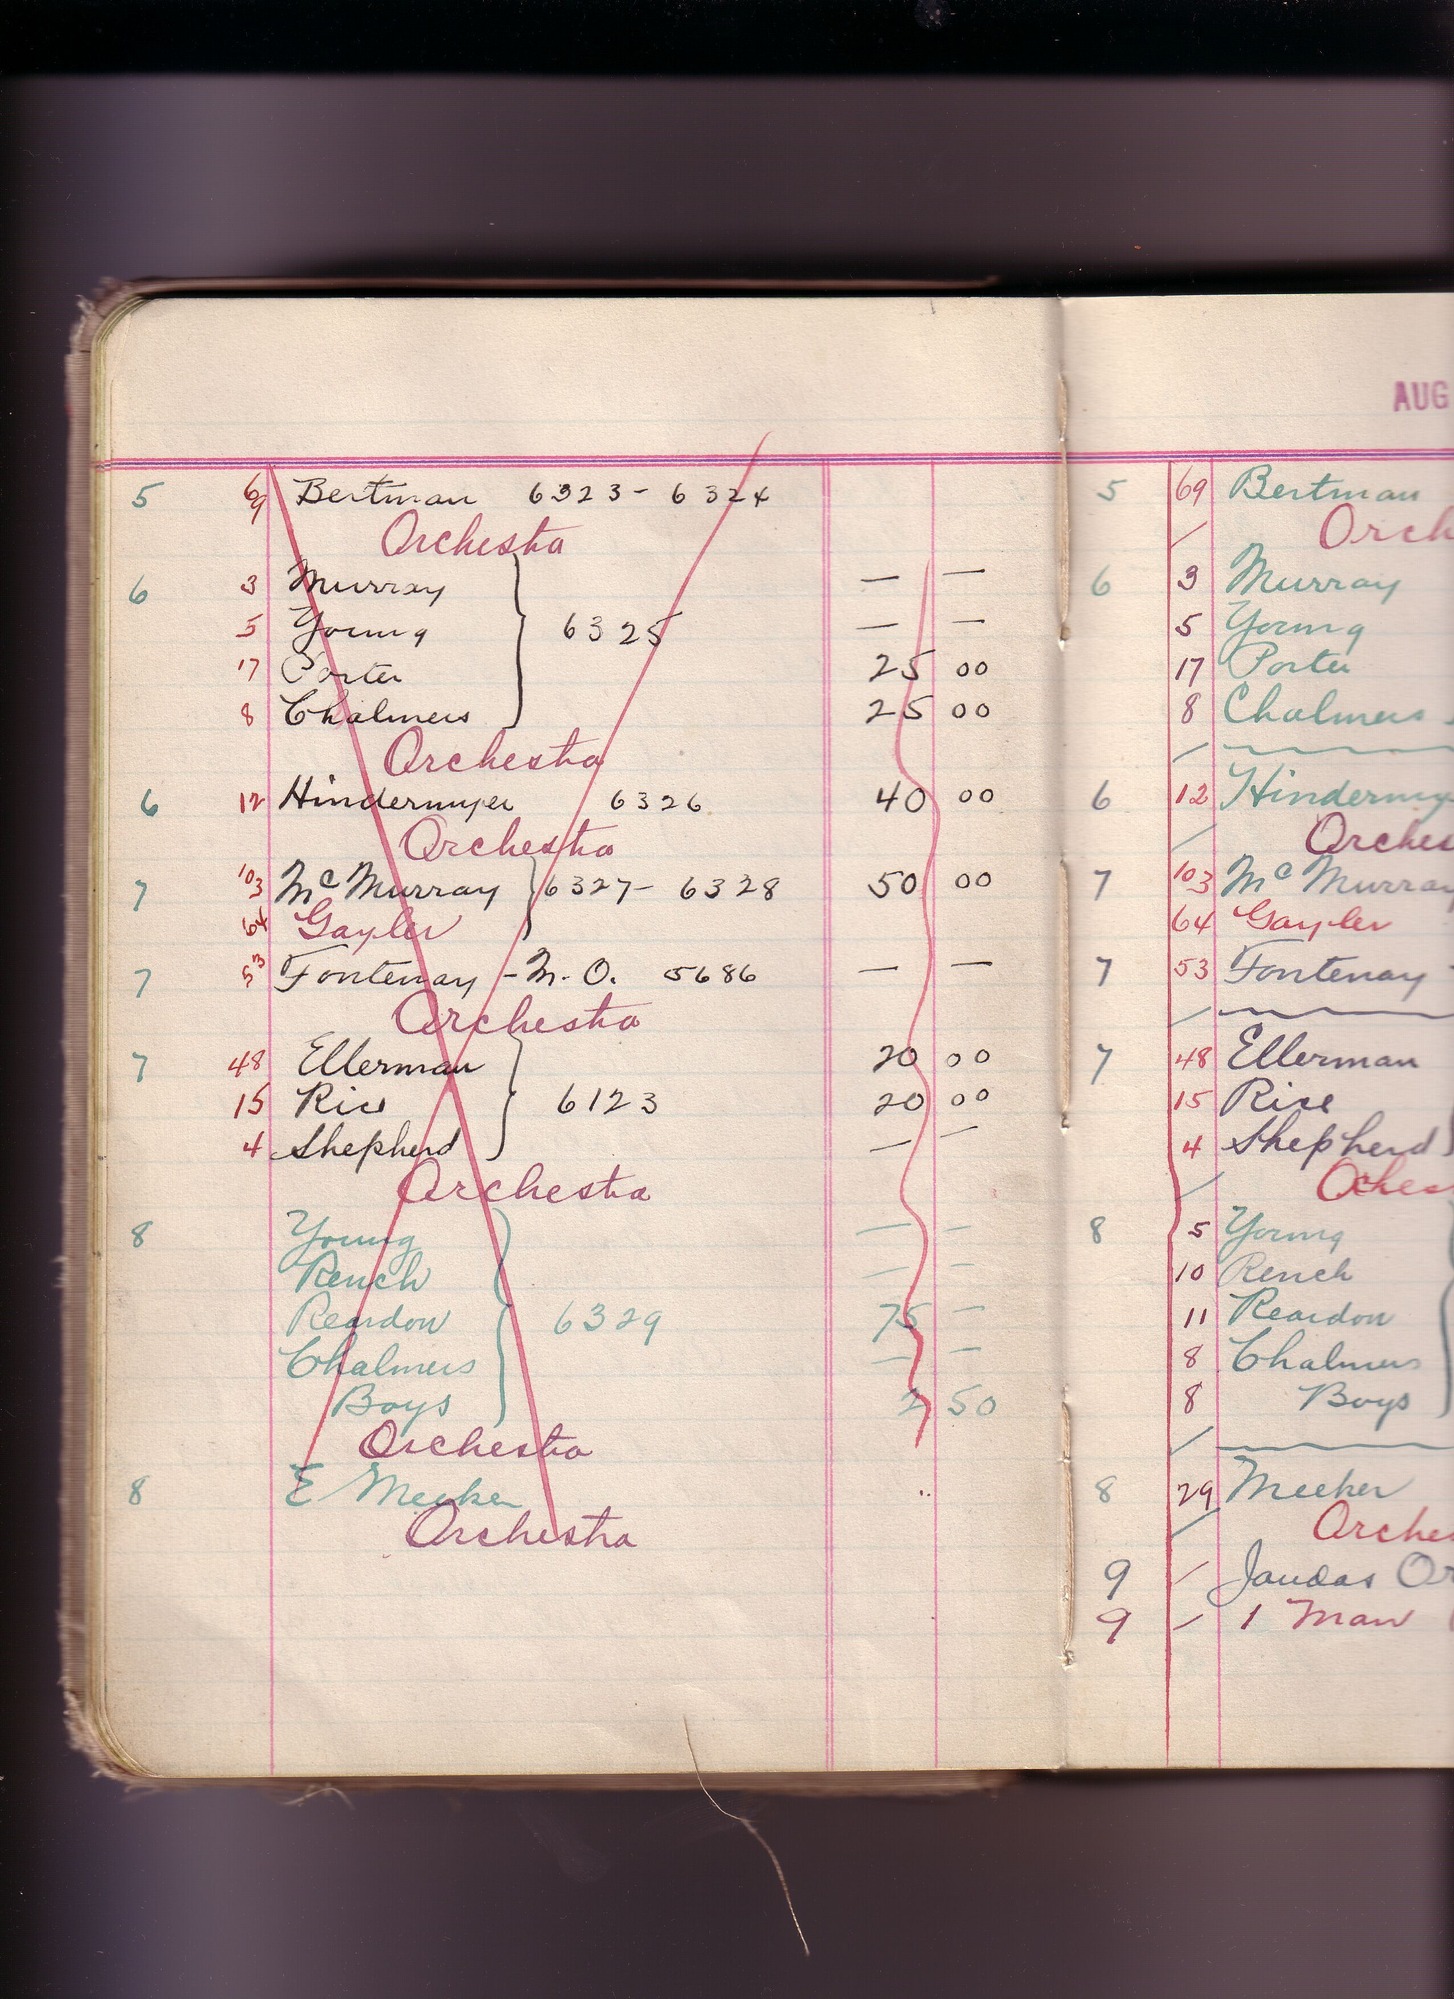 5 69 Bertman 6323 - 6324
Orchestra
6 3 Murray — —
5 Young 6325 — —
17 Porter 25 00
8 Chalmers 25 00
Orchestra
6 12 Hindermyer 6326 40 00
Orchestra
7 103 McMurray 6327 - 6328 50 00
64 Gayler
7 53 Fontenay - M.O. 5686 — —
Orchestra
7 48 Ellerman 20 00
15 Rice 6123 20 00
4 Shepherd — —
Orchestra
8 Young — —
Rench — —
Reardon 6329 75 —
Chalmers — —
Boys 2 50
Orchestra
8 E Meeker
Orchestra
AUG
5 69 Bertman
Orch
6 3 Murray
5 Young
17 Porter
8 Chalmers
6 12 Hindermye
Orches
7 103 McMurray
64 Gayler
7 53 Fontenay
7 48 Ellerman
15 Rice
4 Shepherd
Oches
8 5 Young
10 Rench
11 Reardon
8 Chalmers
8 Boys
8 29 Meeker
Orches
9 Jaudas Or
9 1 Man